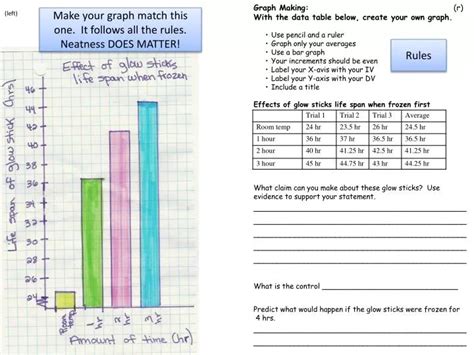 (left)
Make your graph match this
one. It follows all the rules.
Neatness DOES MATTER!
Effect of glow sticks
life span when frozen
Life span of glow stick (hrs)
46
44
42
40
38
36
34
32
30
28
26
24
Room temp
1 hr
2 hr
3 hr
Amount of time (hr)
Graph Making: (r)
With the data table below, create your own graph.
• Use pencil and a ruler
• Graph only your averages
• Use a bar graph
• Your increments should be even
• Label your X-axis with your IV
• Label your Y-axis with your DV
• Include a title
Rules
Effects of glow sticks life span when frozen first
Trial 1 Trial 2 Trial 3 Average
Room temp 24 hr 23.5 hr 26 hr 24.5 hr
1 hour 36 hr 37 hr 36.5 hr 36.5 hr
2 hour 40 hr 41.25 hr 42.5 hr 41.25 hr
3 hour 45 hr 44.75 hr 43 hr 44.25 hr
What claim can you make about these glow sticks? Use
evidence to support your statement.
What is the control
Predict what would happen if the glow sticks were frozen for
4 hrs.